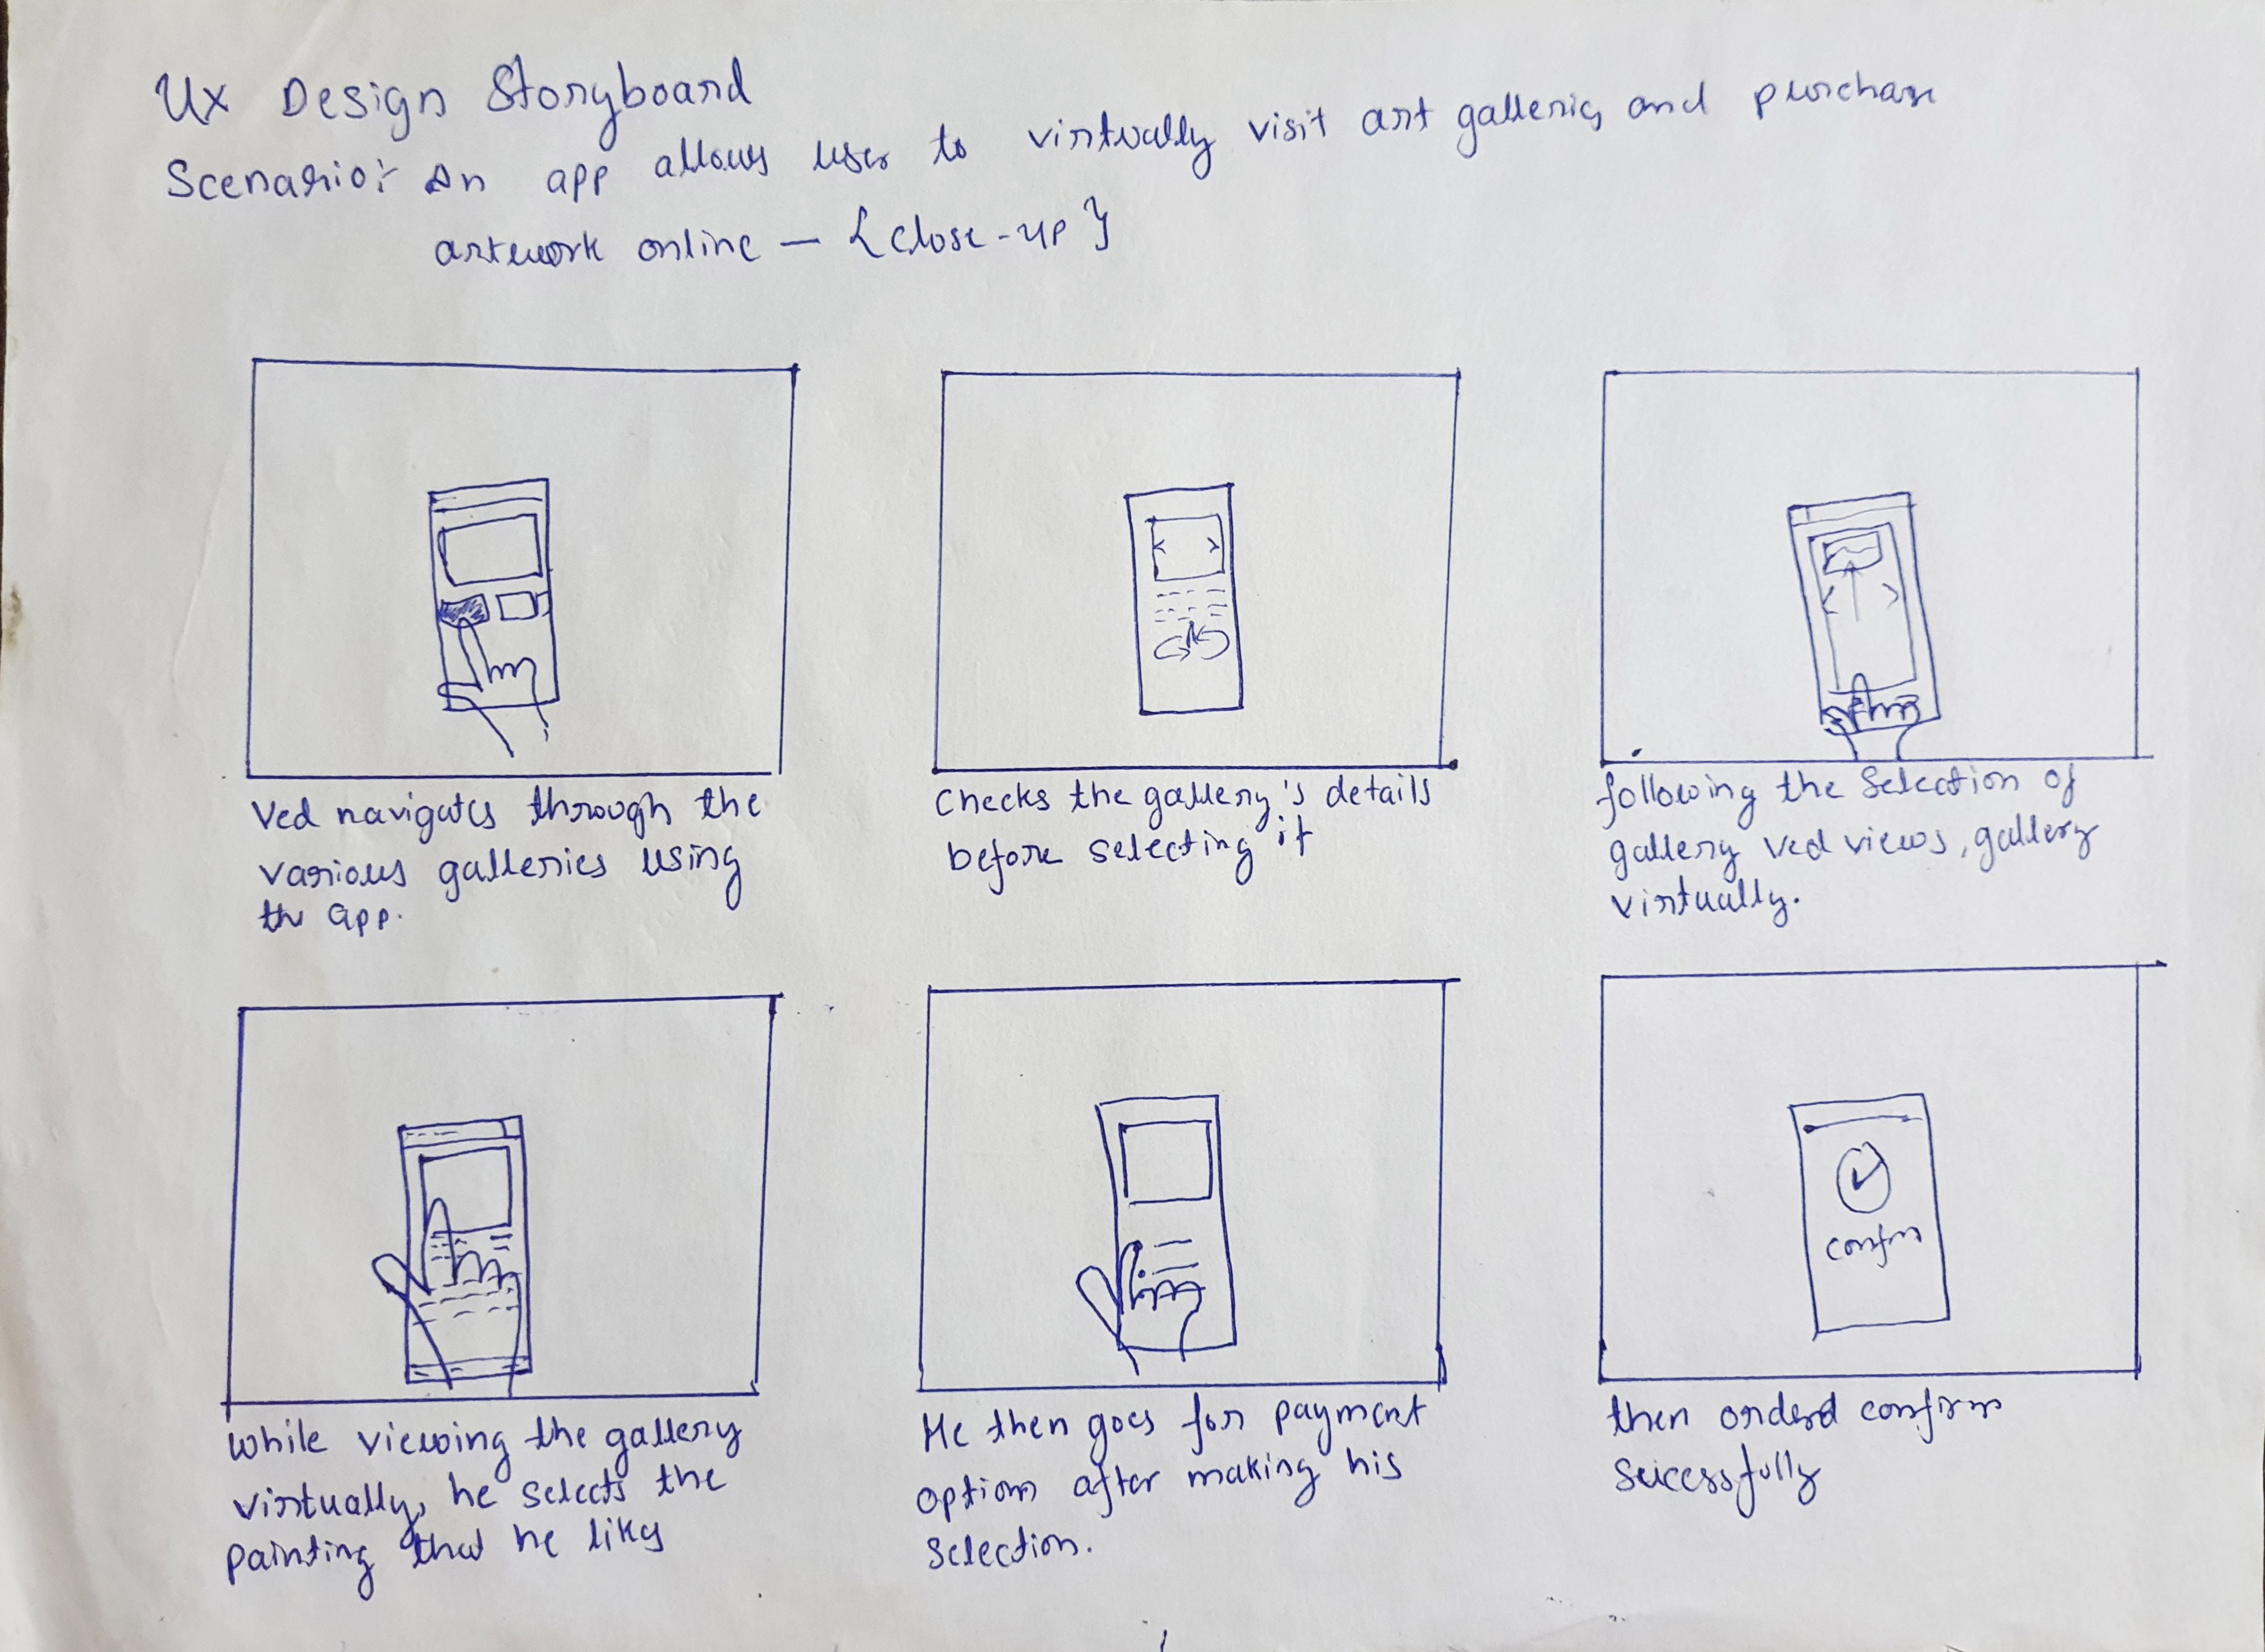 UX Design Storyboard
Scenario:- An app allows user to virtually visit art galleries and purchase
artwork online — {close-up}
Ved navigates through the
various galleries using
the app.
Checks the gallery's details
before selecting it
following the Selection of
gallery ved views, gallery
virtually.
confrm
while viewing the gallery
virtually, he selects the
painting that he likes
He then goes for payment
option after making his
selection.
then orderd confirm
successfully